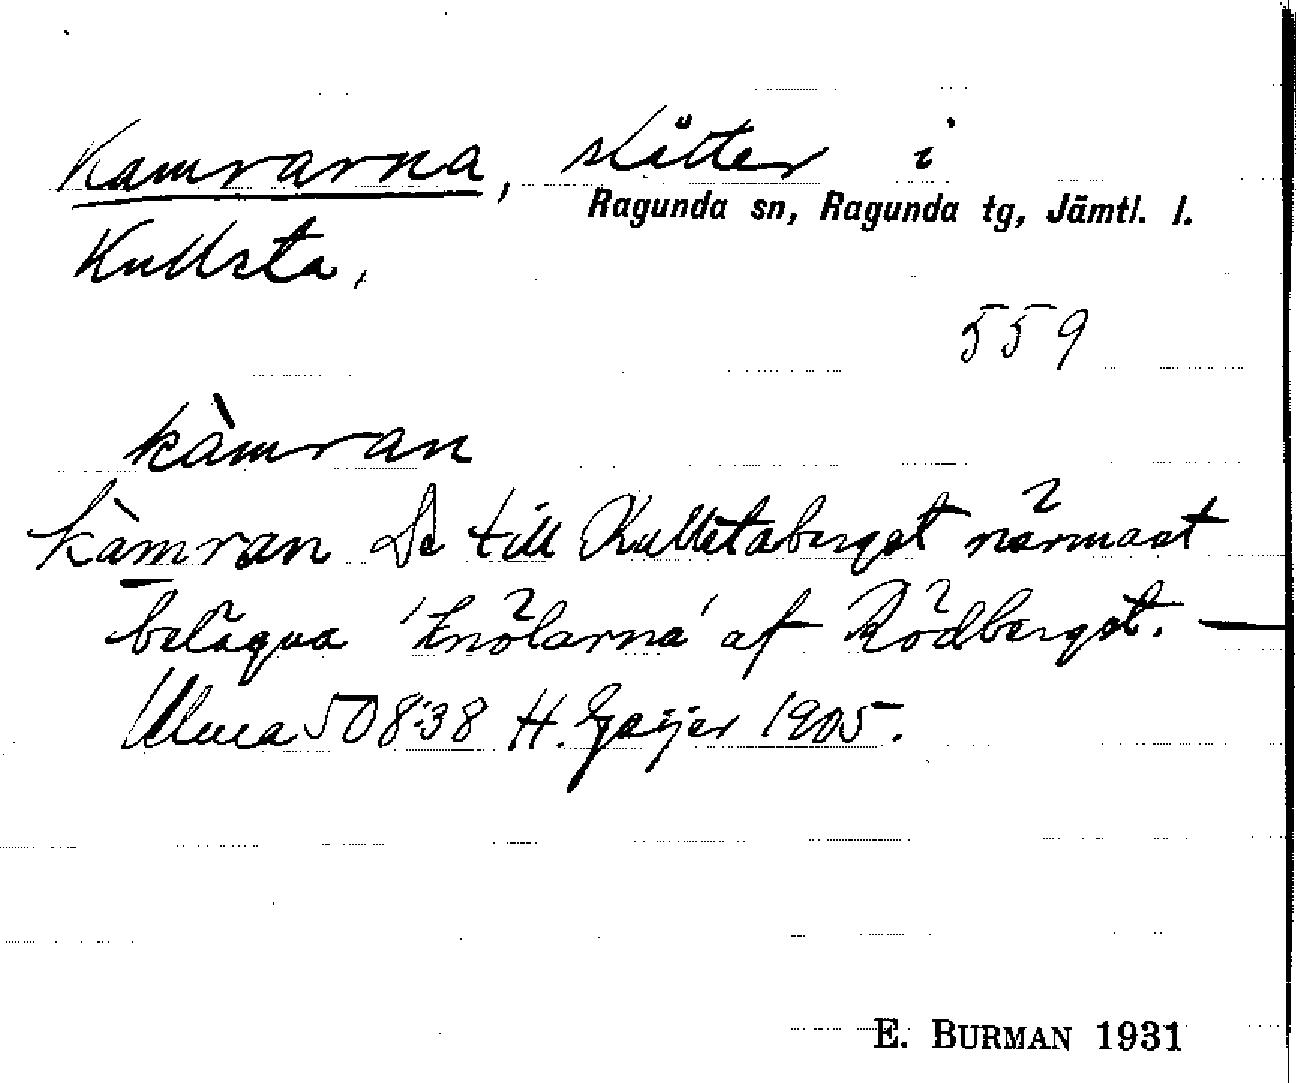 Kamrarna, slåtter i
Ragunda sn, Ragunda tg, Jämtl. l.
Kullsta,
559
kàmran
kàmran De till Kullstaberget närmast
belägna 'knölarna' af Rödberget. —
Ulma 508:38 H. Geijer 1905.
E. BURMAN 1931